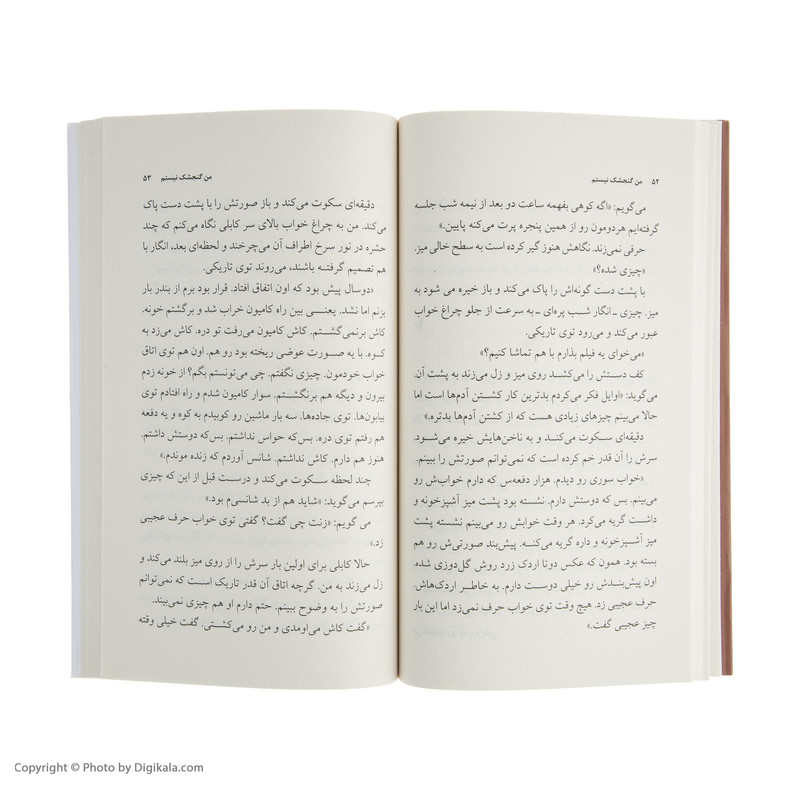 ۵۲ من گنجشک نیستم
می‌گویم: «اگه کوهی بفهمه ساعت دو بعد از نیمه شب جلسه
گرفته‌ایم هردومون رو از همین پنجره پرت می‌کنه پایین.»
حرفی نمی‌زند. نگاهش هنوز گیر کرده است به سطح خالی میز.
«چیزی شده؟»
با پشت دست گونه‌اش را پاک می‌کند و باز خیره می شود به
میز. چیزی ـ انگار شب پره‌ای ـ به سرعت از جلو چراغ خواب
عبور می‌کند و می‌رود توی تاریکی.
«می‌خوای یه فیلم بذارم با هم تماشا کنیم؟»
کف دستش را می‌کشد روی میز و زل می‌زند به پشت آن.
می‌گوید: «اوایل فکر می‌کردم بدترین کار کشتن آدم‌ها است اما
حالا می‌بینم چیزهای زیادی هست که از کشتن آدم‌ها بدتره.»
دقیقه‌ای سکوت می‌کند و به ناخن‌هایش خیره می‌شود.
سرش را آن قدر خم کرده است که نمی‌توانم صورتش را ببینم.
«خواب سوری رو دیدم. هزار دفعه‌س که دارم خواب‌ش رو
می‌بینم. بس که دوستش دارم. نشسته بود پشت میز آشپزخونه و
داشت گریه می‌کرد. هر وقت خوابش رو می‌بینم نشسته پشت
میز آشپزخونه و داره گریه می‌کنه. پیش‌بند صورتی‌ش رو هم
بسته بود. همون که عکس دوتا اردک زرد روش گل‌دوزی شده.
اون پیش‌بندش رو خیلی دوست دارم. به خاطر اردک‌هاش.
حرف عجیبی زد. هیچ وقت توی خواب حرف نمی‌زد اما این بار
چیز عجیبی گفت.»
من گنجشک نیستم ۵۳
دقیقه‌ای سکوت می‌کند و باز صورتش را با پشت دست پاک
می‌کند. من به چراغ خواب بالای سر کابلی نگاه می‌کنم که چند
حشره در نور سرخ اطراف آن می‌چرخند و لحظه‌ای بعد، انگار با
هم تصمیم گرفته باشند، می‌روند توی تاریکی.
«دوسال پیش بود که اون اتفاق افتاد. قرار بود برم از بندر بار
بزنم اما نشد. یعنی بین راه کامیون خراب شد و برگشتم خونه.
کاش برنمی‌گشتم. کاش کامیون می‌رفت تو دره. کاش می‌زد به
کوه. با یه صورت عوضی ریخته بود رو هم. اون هم توی اتاق
خواب خودمون. چیزی نگفتم. چی می‌تونستم بگم؟ از خونه زدم
بیرون و دیگه هم برنگشتم. سوار کامیون شدم و راه افتادم توی
بیابون‌ها. توی جاده‌ها. سه بار ماشین رو کوبیدم به کوه و یه دفعه
هم رفتم توی دره. بس‌که حواس نداشتم. بس‌که دوستش داشتم.
هنوز هم دارم. کاش نداشتم. شانس آوردم که زنده موندم.»
چند لحظه سکوت می‌کند و درست قبل از این که چیزی
بپرسم می‌گوید: «شاید هم از بد شانسی‌م بود.»
می گویم: «زنت چی گفت؟ گفتی توی خواب حرف عجیبی
زد.»
حالا کابلی برای اولین بار سرش را از روی میز بلند می‌کند و
زل می‌زند به من. گرچه اتاق آن قدر تاریک است که نمی‌توانم
صورتش را به وضوح ببینم. حتم دارم او هم چیزی نمی‌بیند.
«گفت کاش می‌اومدی و من رو می‌کشتی. گفت خیلی وقته
Copyright © Photo by Digikala.com